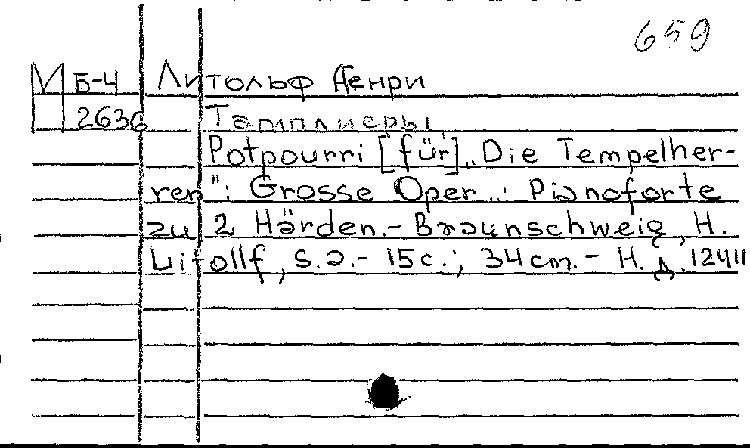 659
М Б-4 Литольф Генри
2636 Тамплиеры
Potpourri [für] „Die Tempelher-
ren": Grosse Oper ..: Pianoforte
zu 2 Härden.- Braunschweig, H.
Litollf, s.a.- 15 c.; 34 cm.- Н.Д. 12411